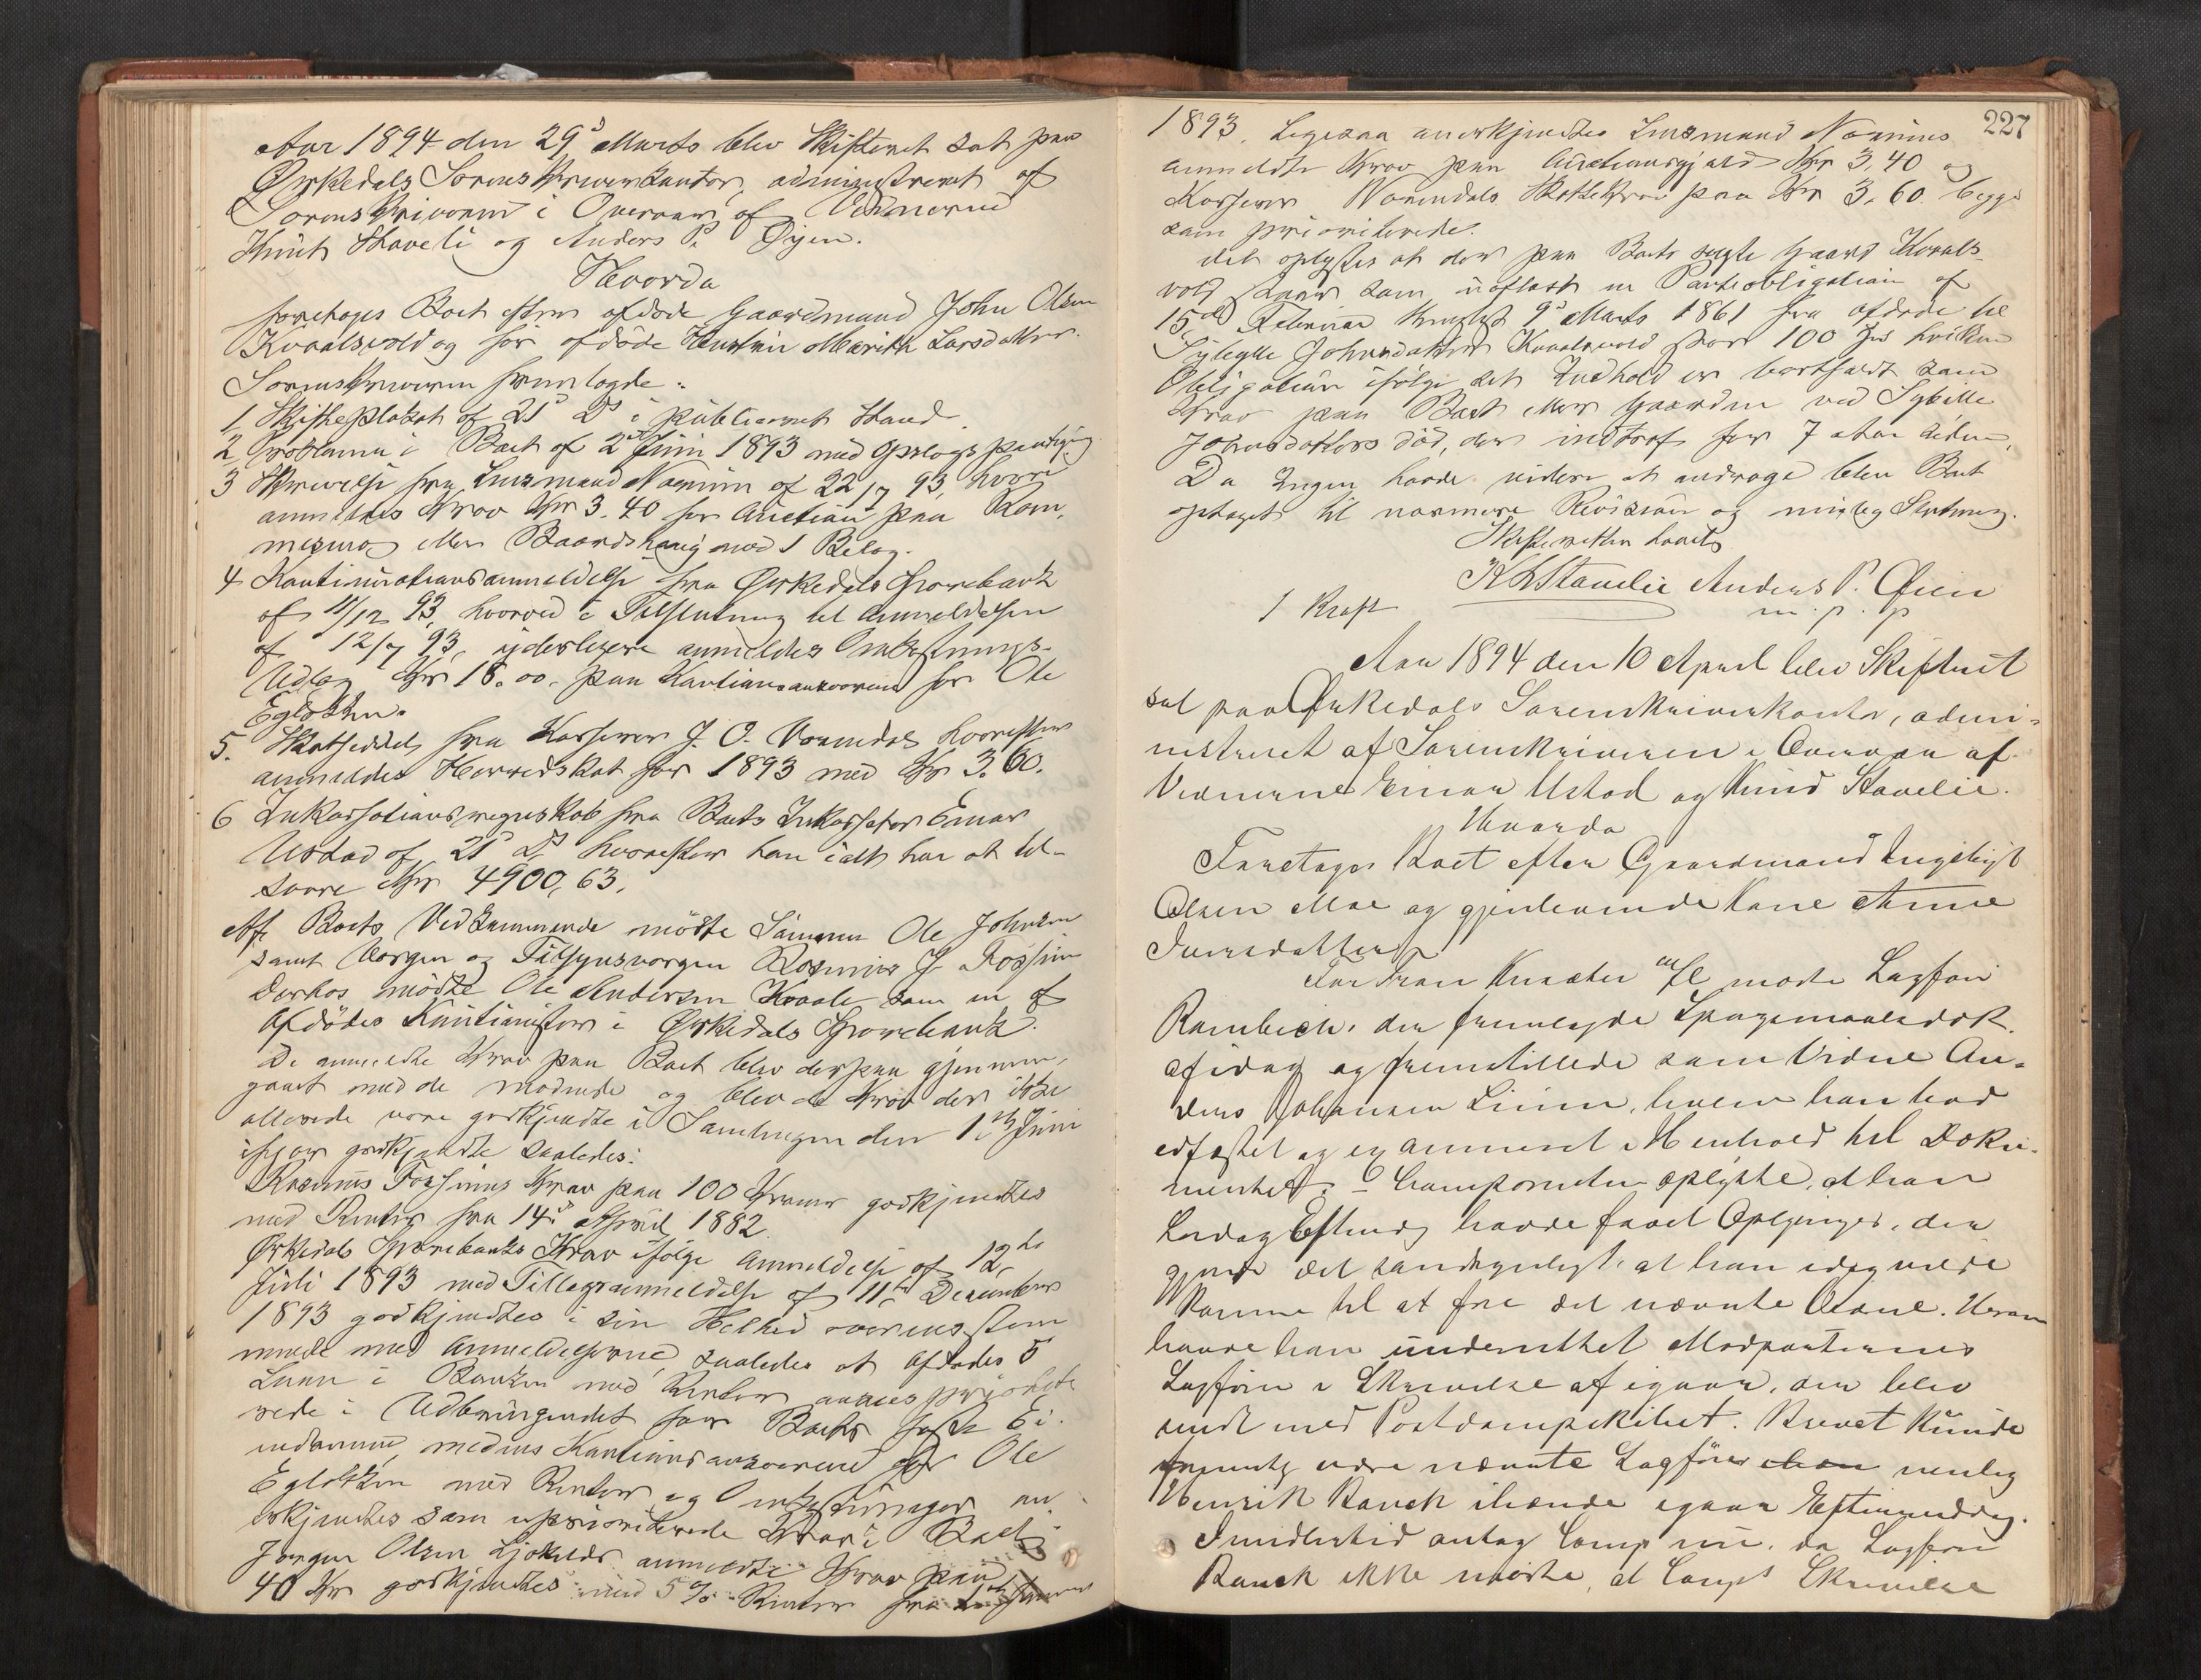 Aar 1894 den 29d Marts blev Skifteret sat paa
Ørkedals Sorenskriverkontor, administreret af
Sorenskriveren i Overvær af Vidnerne
Knut Staveli og Anders P. Øyen.
Hvorda
foretoges Boet efter afdøde Gaardmand John Olsen
Kvaalsvold og før afdøde Hustru Marith Larsdatter.
Sorenskriveren fremlagde:
1 Skifteplakat af 21d ds i publiceret Stand.
2 Proklama i Boet af 2d Juni 1893 med Opslags paategning
3 Skrivelse fra Lensmand Narum af 22/7 93, hvori
anmeldes Krav Kr 3.40 for Auction paa
med 1 Bilag.
4 Kautionsanmeldelse fra Ørkedals Sparebank
af 11/12 93, hvorved i Tilslutning til Anmeldelsen
af 12/7 93, yderligere anmeldes Omkostnings-
Udlæg Kr 18.00. paa Kautionsansvaret for Ole
Egløkken.
5. Skatseddel fra Kasserer J. O. Vormdal hvorefter
anmeldes Herredskat for 1893 med Kr 3.60.
6 Inkassationsregnskab fra Boets Inkassator Einar
Ustad af 21d ds hvorefter han ialt har at til-
svare Kr 4900,63.
Af Boets Vedkommende mødte Sønnen Ole Johnsen
samt Værgen og Tilsynsværgen Rasmus J. Fossum
Derhos mødte Ole Andersen Kvaale som en af
Afdødes Kautionister i Ørkedals Sparebank.
De anmeldte Krav paa Boet blev derpaa gjennem-
gaaet med de mødende og blev de Krav der ikke
allerede vare godkjendte i Samlingen den 1ste Juni
ifjor godkjendte saaledes:
Rasmus Fossums Krav paa 100 Kroner godkjendtes
med Renter fra 14d April 1882.
Ørkedals Sparebanks Krav ifølge Anmeldelse af 12te
Juli 1893 med Tillægsanmeldelse af 11te December
1893 godkjendtes i sin Helhed overensstem
mende med Anmeldelserne, saaledes at Afdødes 5
Laan i Banken med Renter ansees priorite
rede i Udbringendet for Boets faste Ei-
endomme, medens Kautionsansvarene for Ole
Egløkken med Renter og Omkostninger an-
erkjendtes som uprioriterede Krav i Boet.
Jørgen Olsen Ljøkelds anmeldte Krav paa
40 Kr godkjendtes med 5 % Renter fra
227
1893. Ligesaa anerkjendtes Lensmand Narums
anmeldte Krav paa Auctionsgjæld Kr 3,40 og
Kasserer Vormdals Skattekrav paa Kr 3.60. begge
som prioriterede.
Det oplystes at der paa Boets solgte Gaard Kvaals-
vold staar som uaflæst en Panteobligation af
15de Februar thinglyst 9d Marts 1861 fra Afdøde til
Sybylle Johnsdatter Kvaalsvold stor 100 Spd hvilken
Obligation ifølge sit Indhold er bortfaldt som
Krav paa Boet eller Gaarden ved Sybille
Johnsdatters Død, der indtraf for 7 Aar siden.
Da Ingen havde videre at andrage blev Boet
optaget til nærmere Revision og mulig Slutning.
Skifteretten hævet
K L Stavelie Anders P. Øien
1 Kraft m. p. P
Aar 1894 den 10 April blev Skifteret
sat paa Ørkedals Sorenskriverkontor, admi-
nistreret af Sorenskriveren i Overvær af
Vidnerne Einar Ustad og Knud Stavelie.
Hvorda
Foretoges Boet efter Gaardmand Ingebrigt
Olsen Moe og gjenlevende Kone Anne
Iversdatter
For Iver Knudten mfl mødte Sagfører
Rambech, der fremlagde Spørgsmaalsdok.
af idag og fremstillede som Vidne An-
ders Johansen Linum, hvem han bad
edfæstet og examineret i Henhold til Doku-
mentet. – Comparenten oplyste, at han
Lørdag Eftmdg havde faaet Oplysninger, der
gjorde det sandsynligt, at han idag vilde
komme til at føre det nævnte Vidne. Herom
havde han underrettet Modparternes
Sagfører i Skrivelse af igaar, der blev
sendt med Postdampskibet. Brevet kunde
være nævnte Sagfører nemlig
Henrik Rauch ihænde igaar Eftermiddag.
Imidlertid antog Comp nu, da Sagfører
Rauch ikke mødte, at Comps Skrivelse